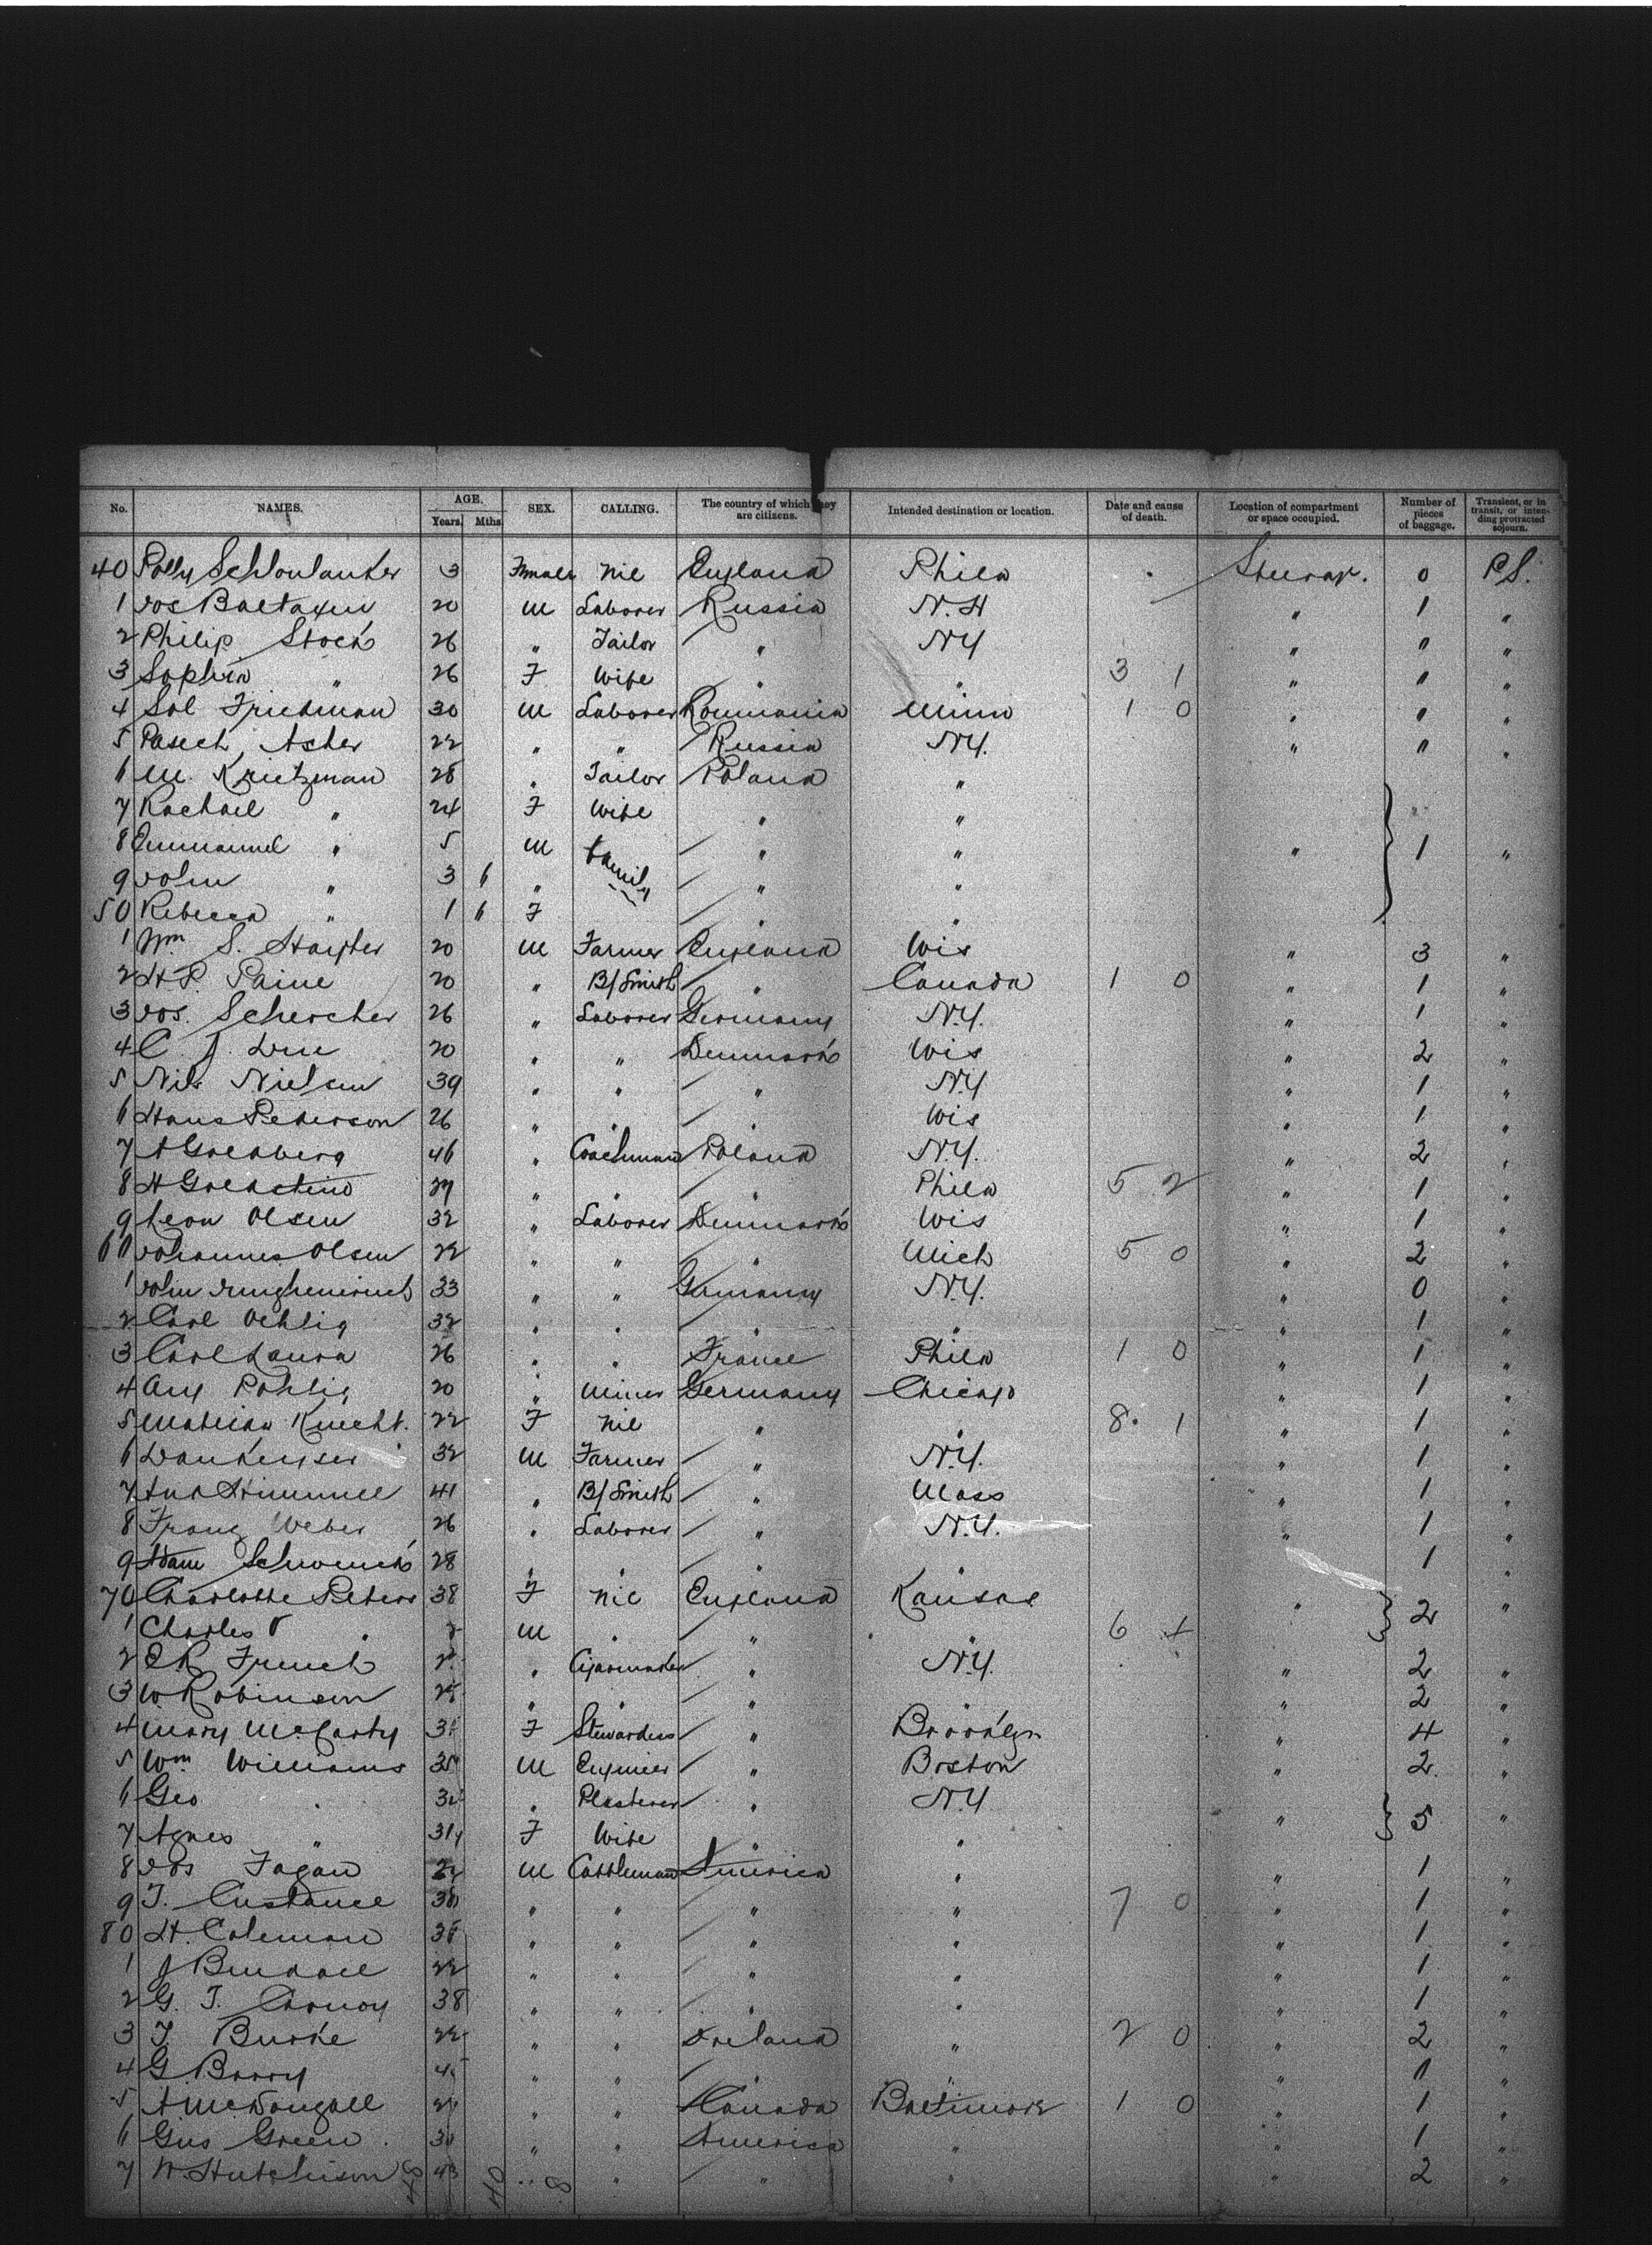 No. NAMES. AGE. Years. Mths. SEX. CALLING. The country of which they are citizens. Intended destination or location. Date and cause of death. Location of compartment or space occupied. Number of pieces of baggage. Transient, or in transit, or intending protracted sojourn.
40 Polly 3 Female Nil England Phila Steerage. 0 P.S.
1 Jos 20 M Laborer Russia N.H " 1 "
2 Philip Stock 26 " Tailor " N.Y " " "
3 Sophia " 26 F Wife " " 3 1 " " "
4 Sol Friedman 30 M Laborer Roumania Minn 1 0 " " "
5 Pasech Asher 22 " " Russia N.Y. " " "
6 M. Krietzman 28 " Tailor Poland "
7 Rachael " 24 F Wife " "
8 Emmanuel " 5 M family " " " 1 "
9 John " 3 6 " " "
50 Rebecca " 1 6 F " "
1 Wm S. 20 M Farmer England Wis " 3 "
2 H P. Paine 20 " B/Smith " Canada 1 0 " 1 "
3 Jos. Schercher 26 " Laborer Germany N.Y. " 1 "
4 C. J. 20 " " Denmark Wis " 2 "
5 Nils Nielsen 39 " " " N.Y " 1 "
6 Hans Pederson 26 " " " Wis " 1 "
7 A Goldberg 46 " Coachman Poland N.Y. " 2 "
8 H Goldstino " " " Phila 5 2 " 1 "
9 Leon Olsen 32 " Laborer Denmark Wis " 1 "
60 Johannes Olsen 22 " " " Mich 5 0 " 2 "
1 John 33 " " Germany N.Y. " 0 "
2 Carl Oehlig 32 " " " " " 1 "
3 Carl Laura 26 " " France Phila 1 0 " 1 "
4 Aug Pohlig 20 " Miner Germany Chicago " 1 "
5 Knecht. 22 F Nil " " 8 1 " 1 "
6 32 M Farmer " N.Y. " 1 "
7 And Himmel 41 " B/Smith " Mass " 1 "
8 Franz Weber 26 " Laborer " N.Y. " 1 "
9 Adam Schwenck 28 " " " " 1 "
70 Charlotte Peters 38 F Nil England Kansas " 2 "
1 Charles P " M " " " 6
2 E R French " Cigarmaker " N.Y. " 2 "
3 W. Robinson " " " " " 2 "
4 Mary McCarty F Stewardess " Brooklyn " 4 "
5 Wm Williams 35 M Engineer " Boston " 2 "
6 Geo " " Plasterer " N.Y " 5 "
7 Agnes " F Wife " "
8 Jos Fagan M Cattleman America " " 1 "
9 T. Custance 38 " " " " 7 0 " 1 "
80 H. Coleman " " " " " 1 "
1 J 22 " " " " " 1 "
2 G. T. 38 " " " " " 1 "
3 T. Burke 22 " " Ireland " 2 0 " 2 "
4 G. Barry " " " " " "
5 A McDougall " " Canada Baltimore 1 0 " 1 "
6 Gus Green " " America " " 1 "
7 W. Hutchison 43 " " " " " 2 "
48 40 8